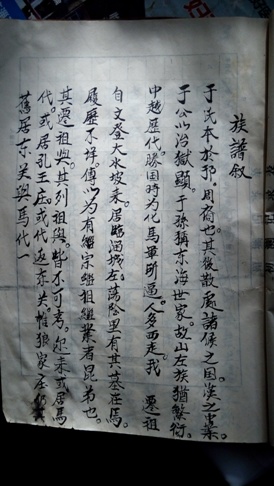 族譜叙
于氏本於邘。周裔也。其後散處諸侯之国。漢之
于公以治獄顯。于孫稱東海世家。故山左族猶繁衍。
中越歷代。勝国時為化馬軍所逼。人多西走。我 遷祖
自文登大水坡來。居臨淄城左。蕩陰里有其墓在焉。
履歷不祥。傳以为有繼宗繼祖繼業者昆弟也。
其遷祖與。其列祖與。皆不可考。尔來或居馬
代。或居孔王庄。或代返东关。惟狼家庄仍
舊居东关與馬代一